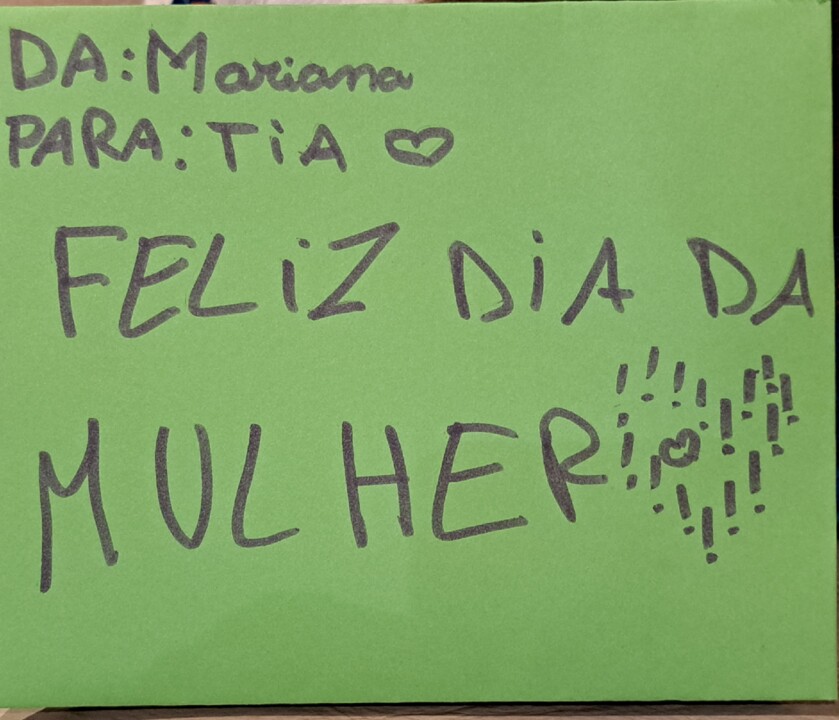 DA: Mariana
PARA: TiA ♡
FELiZ DiA DA
MULHER!